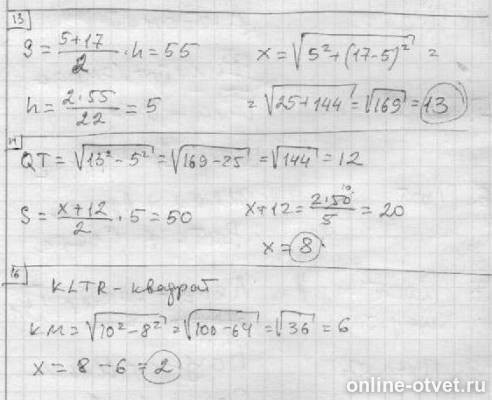 13
S = (5+17)/2 · h = 55
h = (2·55)/22 = 5
x = √(5² + (17-5)²) =
= √(25+144) = √169 = 13
14
QT = √(13² - 5²) = √(169-25) = √144 = 12
S = (x+12)/2 · 5 = 50
x+12 = (2·50)/5 = 20
10
x = 8
16
KLTR - квадрат
KM = √(10² - 8²) = √(100-64) = √36 = 6
x = 8 - 6 = 2
online-otvet.ru